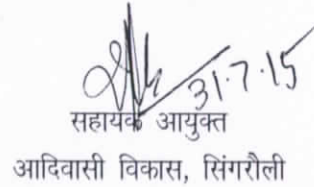 31.7.15
सहायक आयुक्त
आदिवासी विकास, सिंगरौली